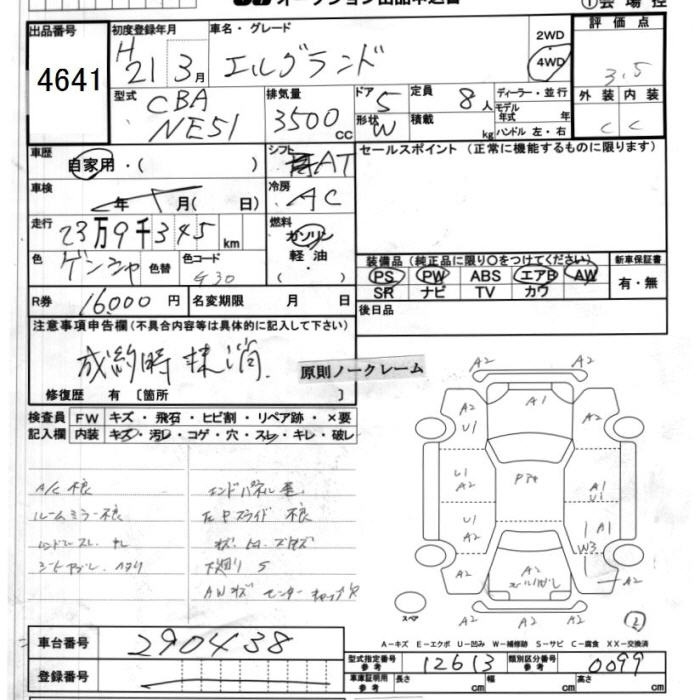 出品番号
4641
初度登録年月 車名・グレード
H21 3月 エルグランド
2WD
4WD
評価点
3.5
型式 CBA
NE51
排気量 3500 CC
ドア 5
形状 W
定員 8人
積載 kg
ディーラー・並行
モデル年式 年
ハンドル 左・右
外装 内装
C C
車歴
自家用・( )
シフト AT
車検
年 月( 日)
冷房 AC
走行
23万9千345 km
燃料
ガソリン
軽油・
( )
色 色替 色コード
セールスポイント (正常に機能するものに限ります)
装備品 (純正品に限り○をつけてください)
PS PW ABS エアB AW
SR ナビ TV カワ
新車保証書
有・無
R券 16000円 名変期限 月 日
後日品
注意事項申告欄 (不具合内容等は具体的に記入して下さい)
成約時抹消
原則ノークレーム
修復歴 有 〔箇所 〕
検査員 FW キズ・飛石・ヒビ割・リペア跡・×要
記入欄 内装 キズ・汚レ・コゲ・穴・スレ・キレ・破レ
A/C不良
ルームミラー不良
下廻りS
AWキズ センターキャップ欠
A2 A2
A2 A1 A2
U1
U1 A2 A1 U1
U1 A2 A1
W3
A2 A2 A2
A2 A2
スペア
A−キズ E−エクボ U−凹み W−補修跡 S−サビ C−腐食 XX−交換済
車台番号 290438
登録番号
型式指定番号 参考 12613 類別区分番号 参考 0099
車庫証明用 参考 長さ cm 幅 cm 高さ cm